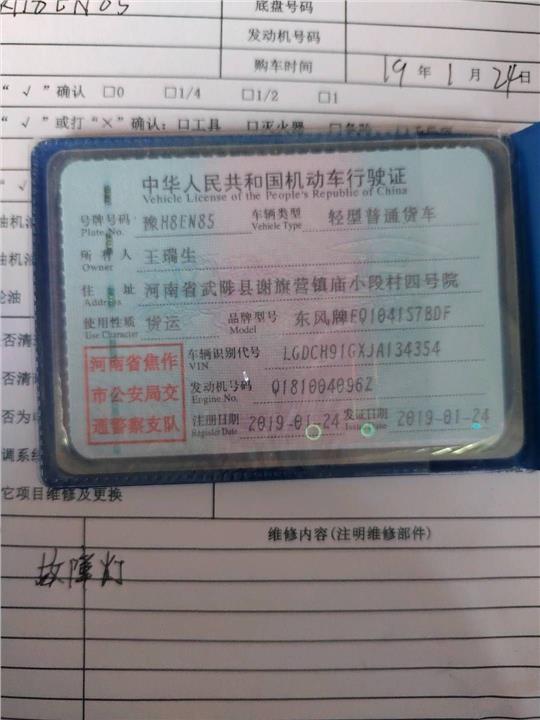 底盘号码
发动机号码
购车时间 19 年 1 月 24 日
“√”确认 □0 □1/4 □1/2 □1
“√”或打“×”确认：□工具 □灭火器
中华人民共和国机动车行驶证
Vehicle License of the People's Republic of China
号牌号码 豫H8EN85 车辆类型 轻型普通货车
Plate No. Vehicle Type
所有人 王瑞生
Owner
住址 河南省武陟县谢旗营镇庙小段村四号院
Address
使用性质 货运 品牌型号 东风牌EQ1041S7BDF
Use Character Model
车辆识别代号 LGDCH91GXJA134354
VIN
发动机号码 Q181004096Z
Engine No.
注册日期 2019-01-24 发证日期 2019-01-24
Register Date Issue Date
河南省焦作
市公安局交
通警察支队
油机油
机油
轮油
否清
否清
否为
调系统
它项目维修及更换
维修内容(注明维修部件)
故障灯